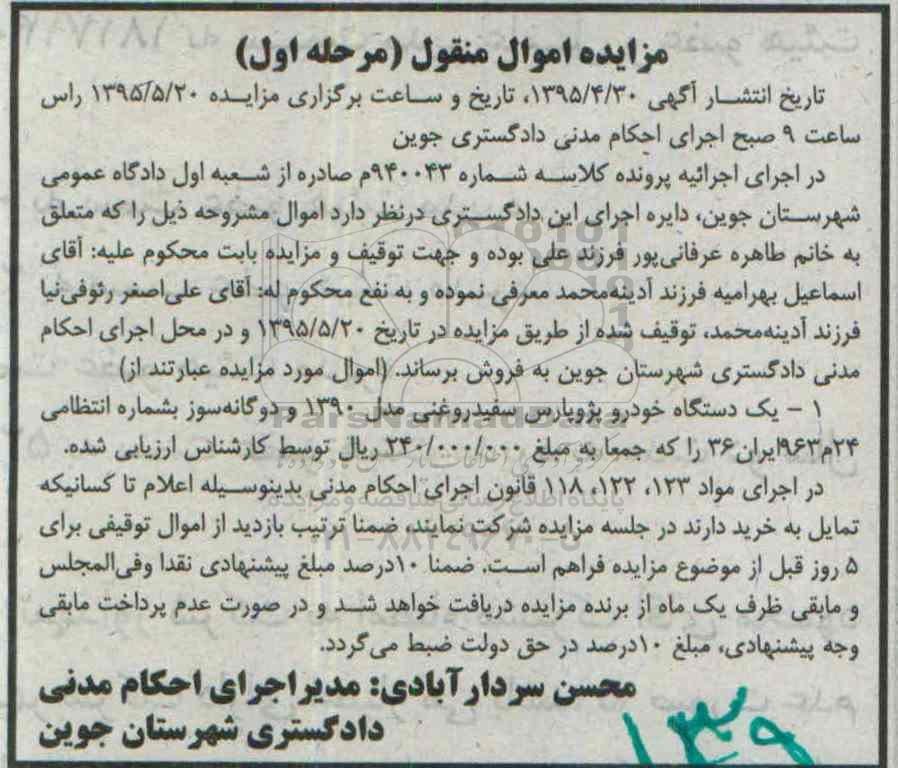 مزایده اموال منقول (مرحله اول)
تاریخ انتشار آگهی ۱۳۹۵/۴/۳۰، تاریخ و ساعت برگزاری مزایده ۱۳۹۵/۵/۲۰ راس
ساعت ۹ صبح اجرای احکام مدنی دادگستری جوین
در اجرای اجرائیه پرونده کلاسه شماره ۹۴۰۰۴۳م صادره از شعبه اول دادگاه عمومی
شهرستان جوین، دایره اجرای این دادگستری درنظر دارد اموال مشروحه ذیل را که متعلق
به خانم طاهره عرفانی‌پور فرزند علی بوده و جهت توقیف و مزایده بابت محکوم علیه: آقای
اسماعیل بهرامیه فرزند آدینه‌محمد معرفی نموده و به نفع محکوم له: آقای علی‌اصغر رئوفی‌نیا
فرزند آدینه‌محمد، توقیف شده از طریق مزایده در تاریخ ۱۳۹۵/۵/۲۰ و در محل اجرای احکام
مدنی دادگستری شهرستان جوین به فروش برساند. (اموال مورد مزایده عبارتند از)
۱ – یک دستگاه خودرو پژوپارس سفیدروغنی مدل ۱۳۹۰ و دوگانه‌سوز بشماره انتظامی
۲۴م۹۶۳ایران۳۶ را که جمعا به مبلغ ۲۴۰/۰۰۰/۰۰۰ ریال توسط کارشناس ارزیابی شده.
در اجرای مواد ۱۲۳، ۱۲۲، ۱۱۸ قانون اجرای احکام مدنی بدینوسیله اعلام تا کسانیکه
تمایل به خرید دارند در جلسه مزایده شرکت نمایند، ضمنا ترتیب بازدید از اموال توقیفی برای
۵ روز قبل از موضوع مزایده فراهم است. ضمنا ۱۰درصد مبلغ پیشنهادی نقدا وفی‌المجلس
و مابقی ظرف یک ماه از برنده مزایده دریافت خواهد شد و در صورت عدم پرداخت مابقی
وجه پیشنهادی، مبلغ ۱۰درصد در حق دولت ضبط می‌گردد.
محسن سردارآبادی: مدیراجرای احکام مدنی
دادگستری شهرستان جوین
ParsNamadData
پایگاه اطلاع رسانی مناقصه و مزایده